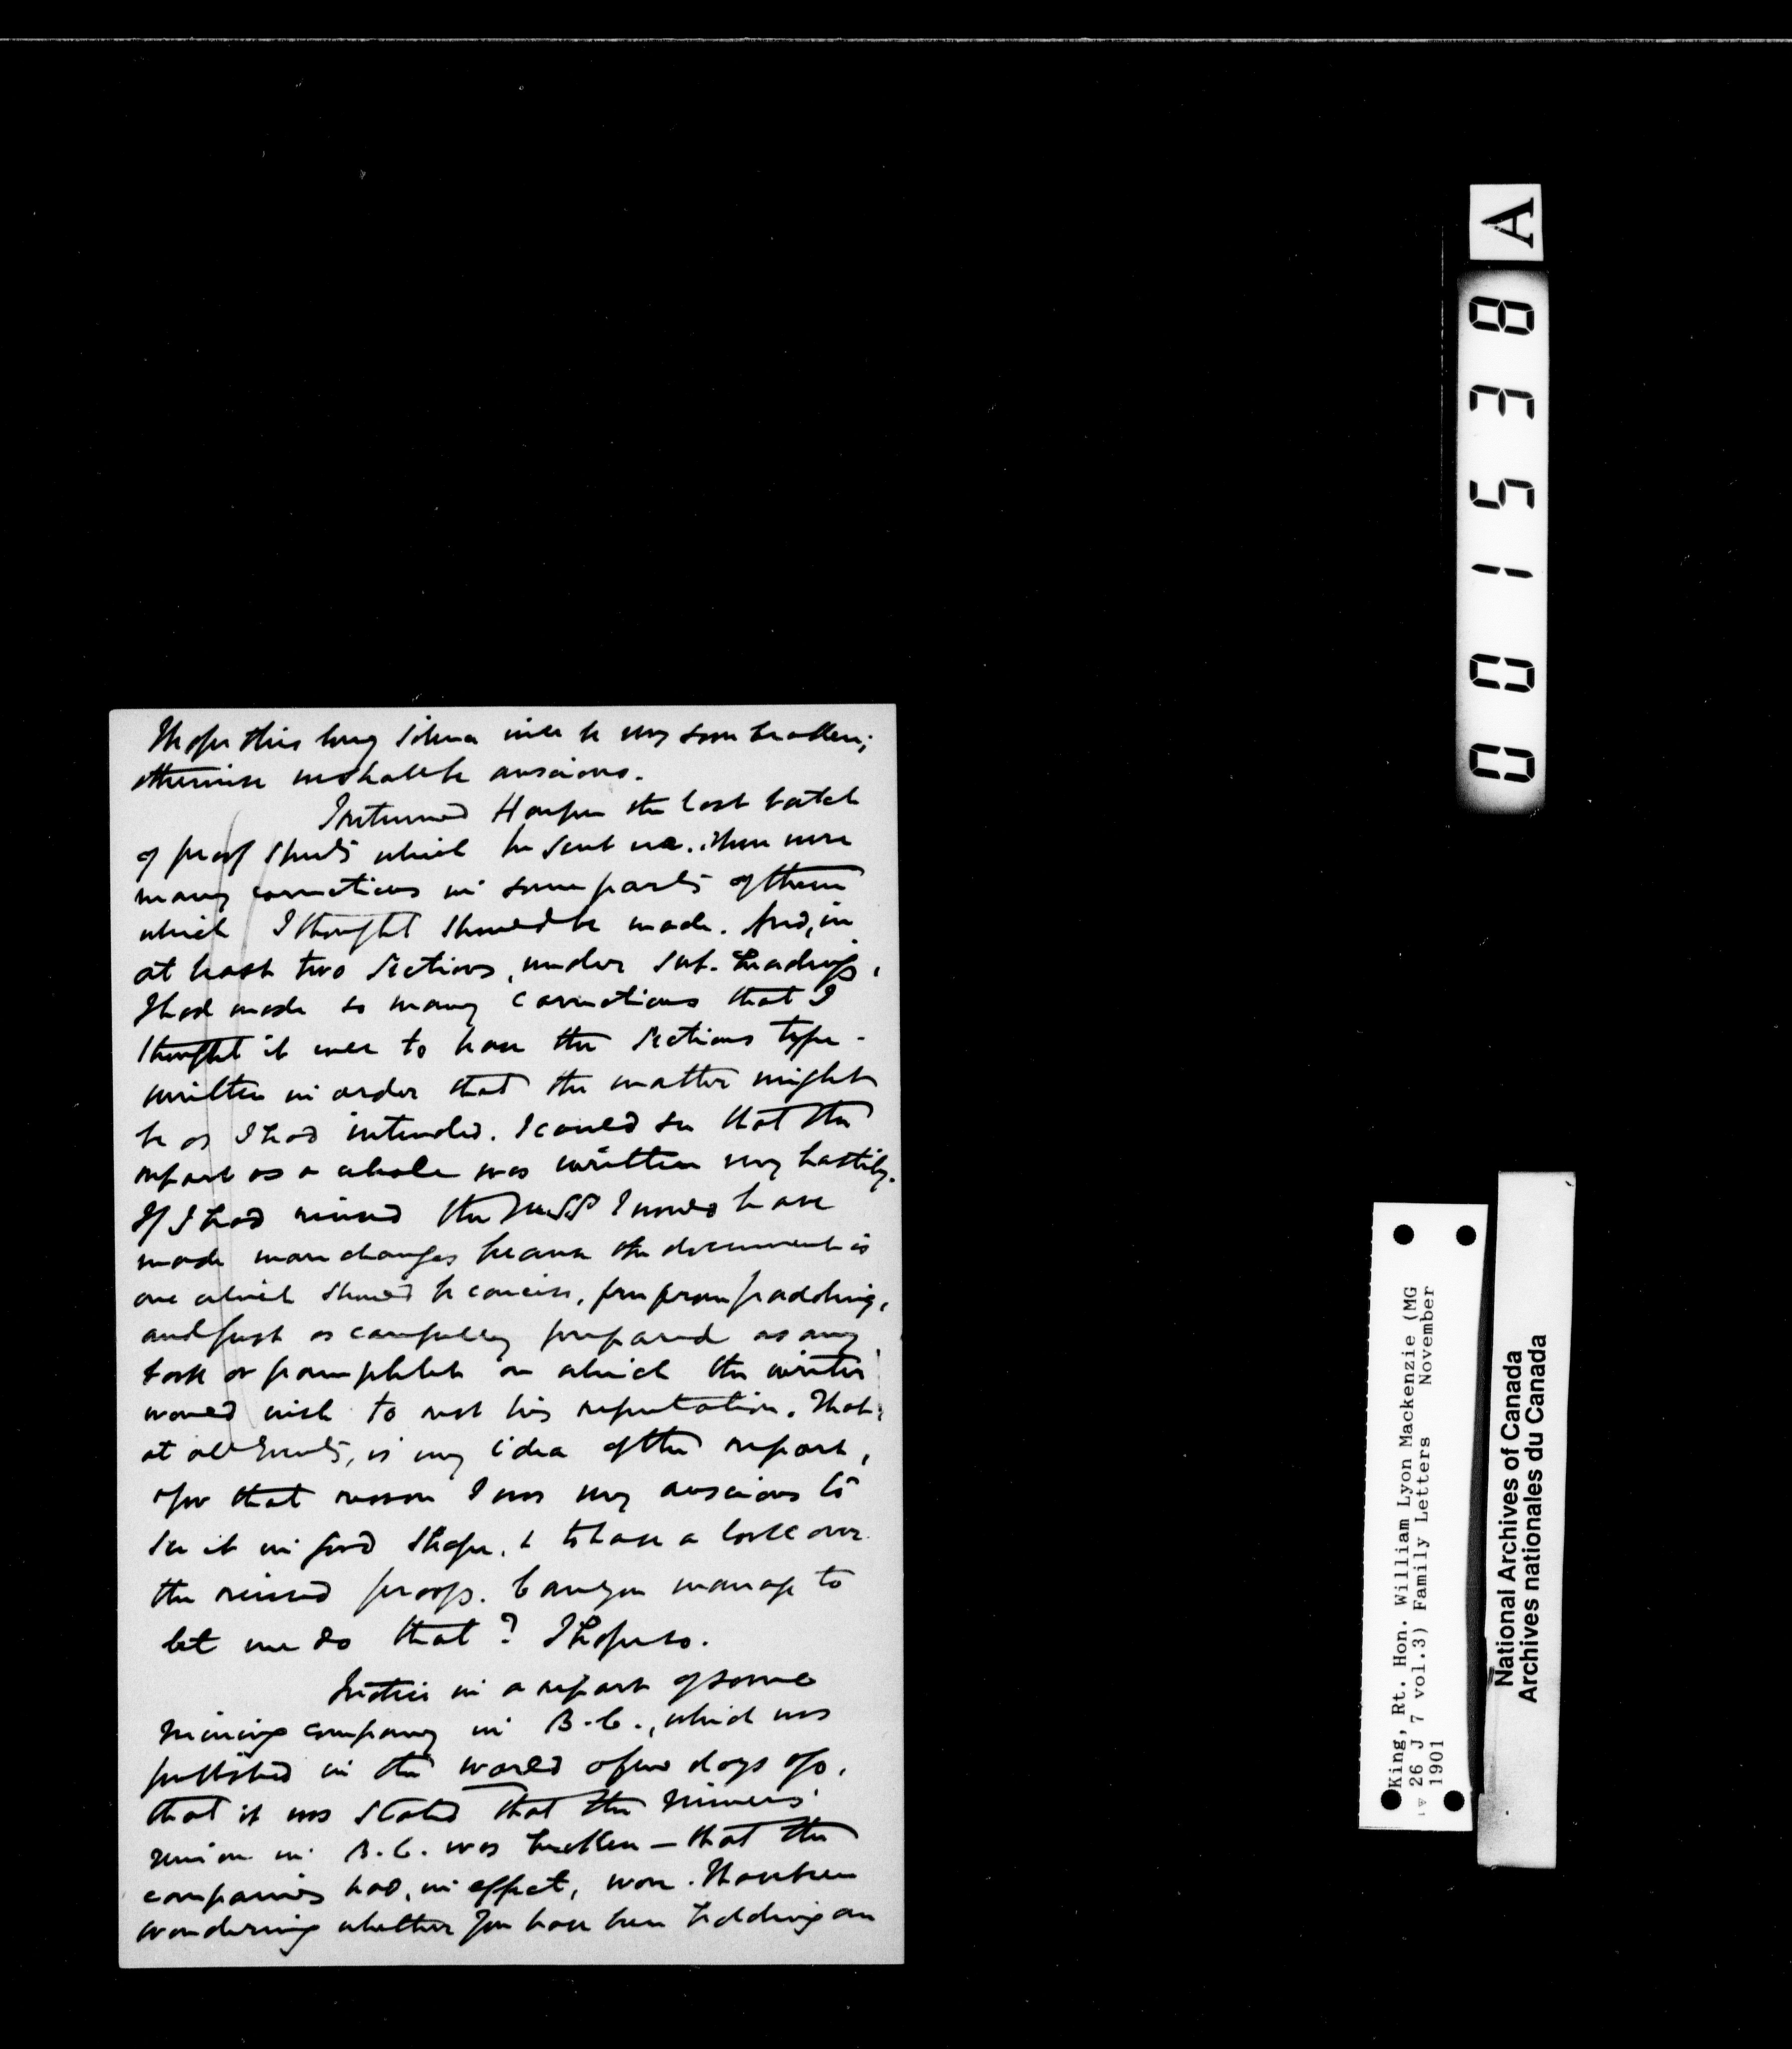 I hope this long silence will be very soon broken;
otherwise we shall be anxious.
I returned Harper the last batch
of proof sheets which he sent me. There were
many corrections in some parts of them
which I thought should be made. And, in
at least two sections, under sub-headings,
I had made so many corrections that I
thought it well to have the sections type-
written in order that the matter might
be as I had intended. I could see that the
report as a whole was written very hastily.
If I had revised the MSS I would have
made more changes because the document is
one which should be concise, free from padding,
and just as carefully prepared as any
book or pamphlet on which the writer
would wish to rest his reputation. That,
at all events, is my idea of the report,
& for that reason I was very anxious to
see it in good shape, & to have a look over
the revised proofs. Can you manage to
let me do that? I hope so.
I notice in a report of some
mining company in B.C., which was
published in the World a few days ago,
that it was stated that the Miners'
union in B.C. was broken — that the
companies had, in effect, won. I have been
wondering whether you have been holding an
A
001538
King, Rt. Hon. William Lyon Mackenzie (MG
26 J 7 vol.3) Family Letters November
1901
National Archives of Canada
Archives nationales du Canada